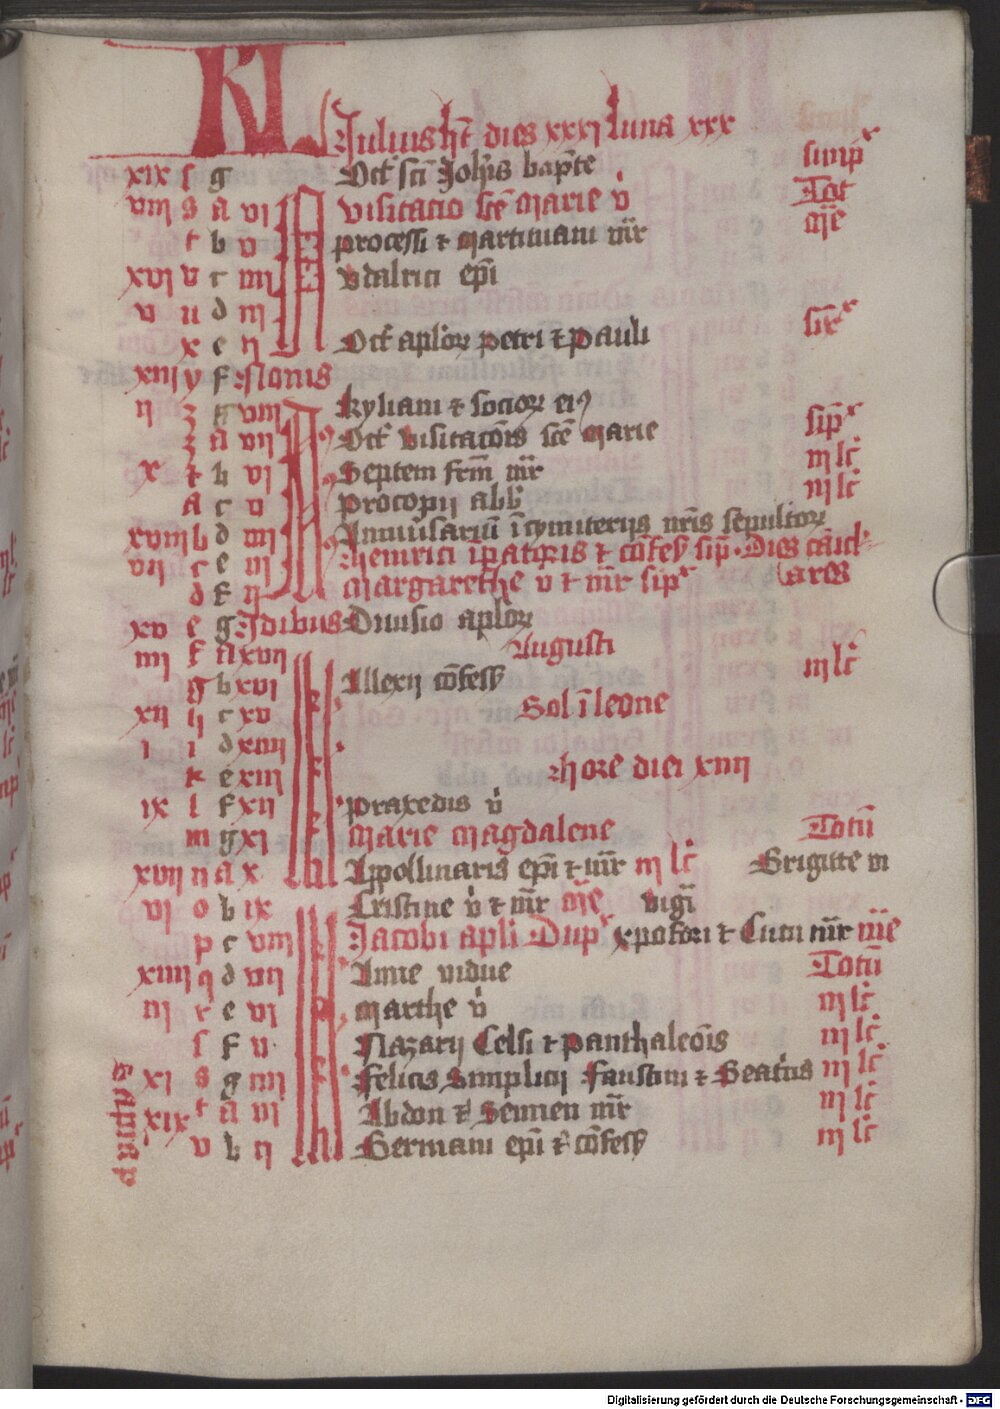 KL Julius ht dies xxxi luna xxx
xix f g Oct sci Johis bapte simpx
viii s a vi visitacio sce marie v Tot
t b v processi et martiniani mr
xvi v c iiii vdalrici epi
v u d iii
x e ii Oct aplor petri et Pauli
xiii y f Nonis
ii z g viii kyliani et socior ei9
z a vii Oct visitacois sce marie sipx
x t b vi Septem frm mr iii lc
a c v procopii abb iii lc
xviii b d iiii Anniusariu i cymiterys nris sepultor
vii c e iii Heinrici ipatoris et cofess sip. Dies cani
d f ii margarethe v et mr sipx culares
xv e g Idibus Diuisio aplor
iiii f a xvii Augusti
g b xvi Allexii cofess iii lc
xii h c xv Sol i leone
i i d xiiii
k e xiii hore diei xiiii
ix l f xii praxedis v
m g xi marie magdalene Totu
xvii n a x Appollinaris epi et mr iii lc Brigitte
vi o b ix Cristine v et mr vigi
p c viii Jacobi apli Dupx xpofori et Cucu mr
xiiii q d vii Anne vidue Totu
iii r e vi marthe v iii lc
f F v Nazarii Celsi et panthaleois iii lc
xi s g iiii felicis Simplicii Faustini et Beatris iii lc
xix t a iii Abdon et Sennen mr iii lc
v b ii Germani epi et cofess iii lc
Digitalisierung gefördert durch die Deutsche Forschungsgemeinschaft - DFG